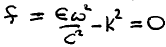 f = εω²/c² - k² = 0